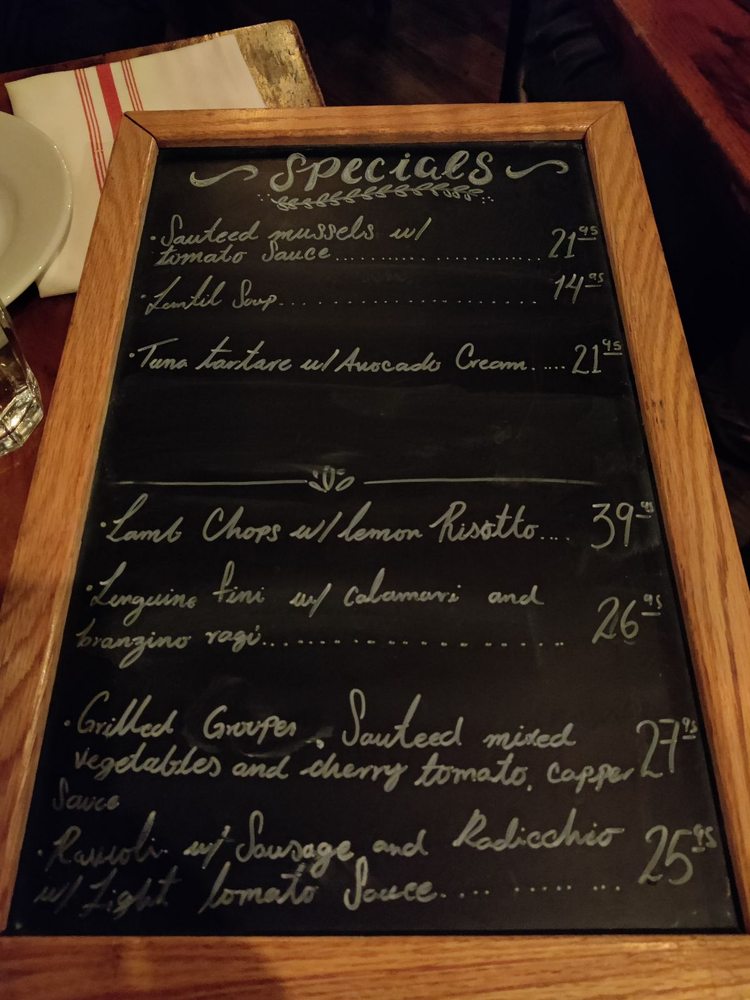 Specials
• Sauteed mussels w/
tomato Sauce................. 21 95
• Lentil Soup.................. 14 95
• Tuna tartare w/ Avocado Cream..... 21 95
• Lamb Chops w/ lemon Risotto.... 39 95
• Linguine fini w/ calamari and
branzino ragi................ 26 95
• Grilled Grouper, Sauteed mixed
vegetables and cherry tomato, capper 27 95
Sauce
• Ravioli w/ Sausage and Radicchio
w/ Light tomato Sauce.... ..... ... 25 95